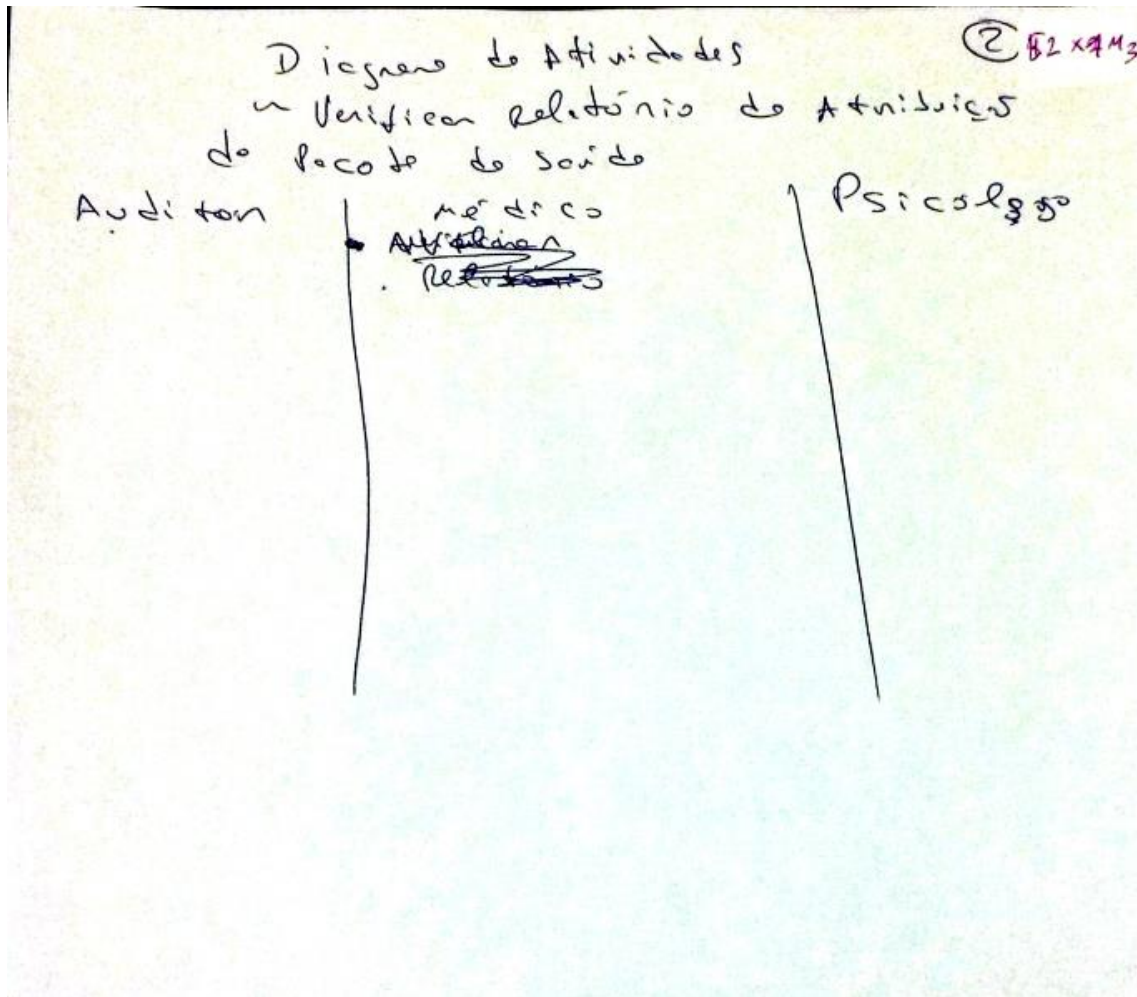 Diagrama de Atividades
~ Verificar Relatório de Atribuição
de Pacote de Saúde
②
Auditor
Médico
Psicólogo